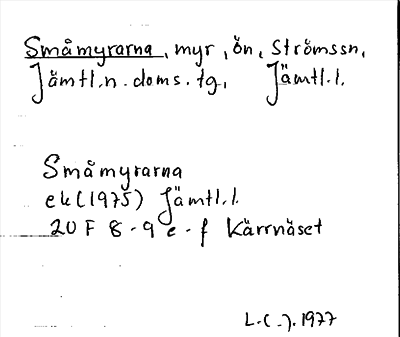 Småmyrarna, myr, ön, Strömssn,
Jämtl.n.doms.tg, Jämtl.l.
Småmyrarna
ek (1975) Jämtl.l.
20 F 8-9 e-f Kärrnäset
L.C-). 1977